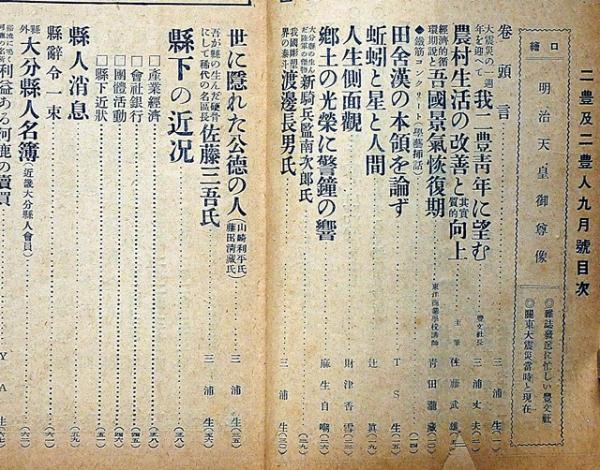 二豐及二豐人九月號目次
口繪
明治天皇御尊像
◎雜誌發送に忙しい豐文社
◎關東大震災當時と現在
卷頭言 三浦生(一)
大震災の一週年を迎へて 我二豐青年に望む 豐文社長 三浦丈夫
農村生活の改善と其實質的向上 主筆 佐藤武雄
經濟的循環期說と 吾國景氣恢復期 東洋商業學校講師 青田瀧藏
◆鐵筋コンクリート(學藝師話)
田舍漢の本領を論ず TS生
蚯蚓と星と人間 辻眞
人生側面觀 財津香雪
鄉土の光榮に警鐘の響 麻生自嘲
大分縣の生んだ陸軍の偉物 新騎兵監南次郎氏
我國彫塑界の泰斗 渡邊長男氏 三浦生
世に隱れた公德の人(山崎利平氏 藤田清藏氏) 三浦生
吾が縣の生んだ硬骨にして稀代の名區長 佐藤三吾氏 三浦生
縣下の近況
□產業經濟
□會社銀行
□團體活動
□縣下近狀
縣人消息
縣辭令一束
縣外 大分縣人名簿(近畿大分縣人會員)
利益ある河鹿の賣買 YA生